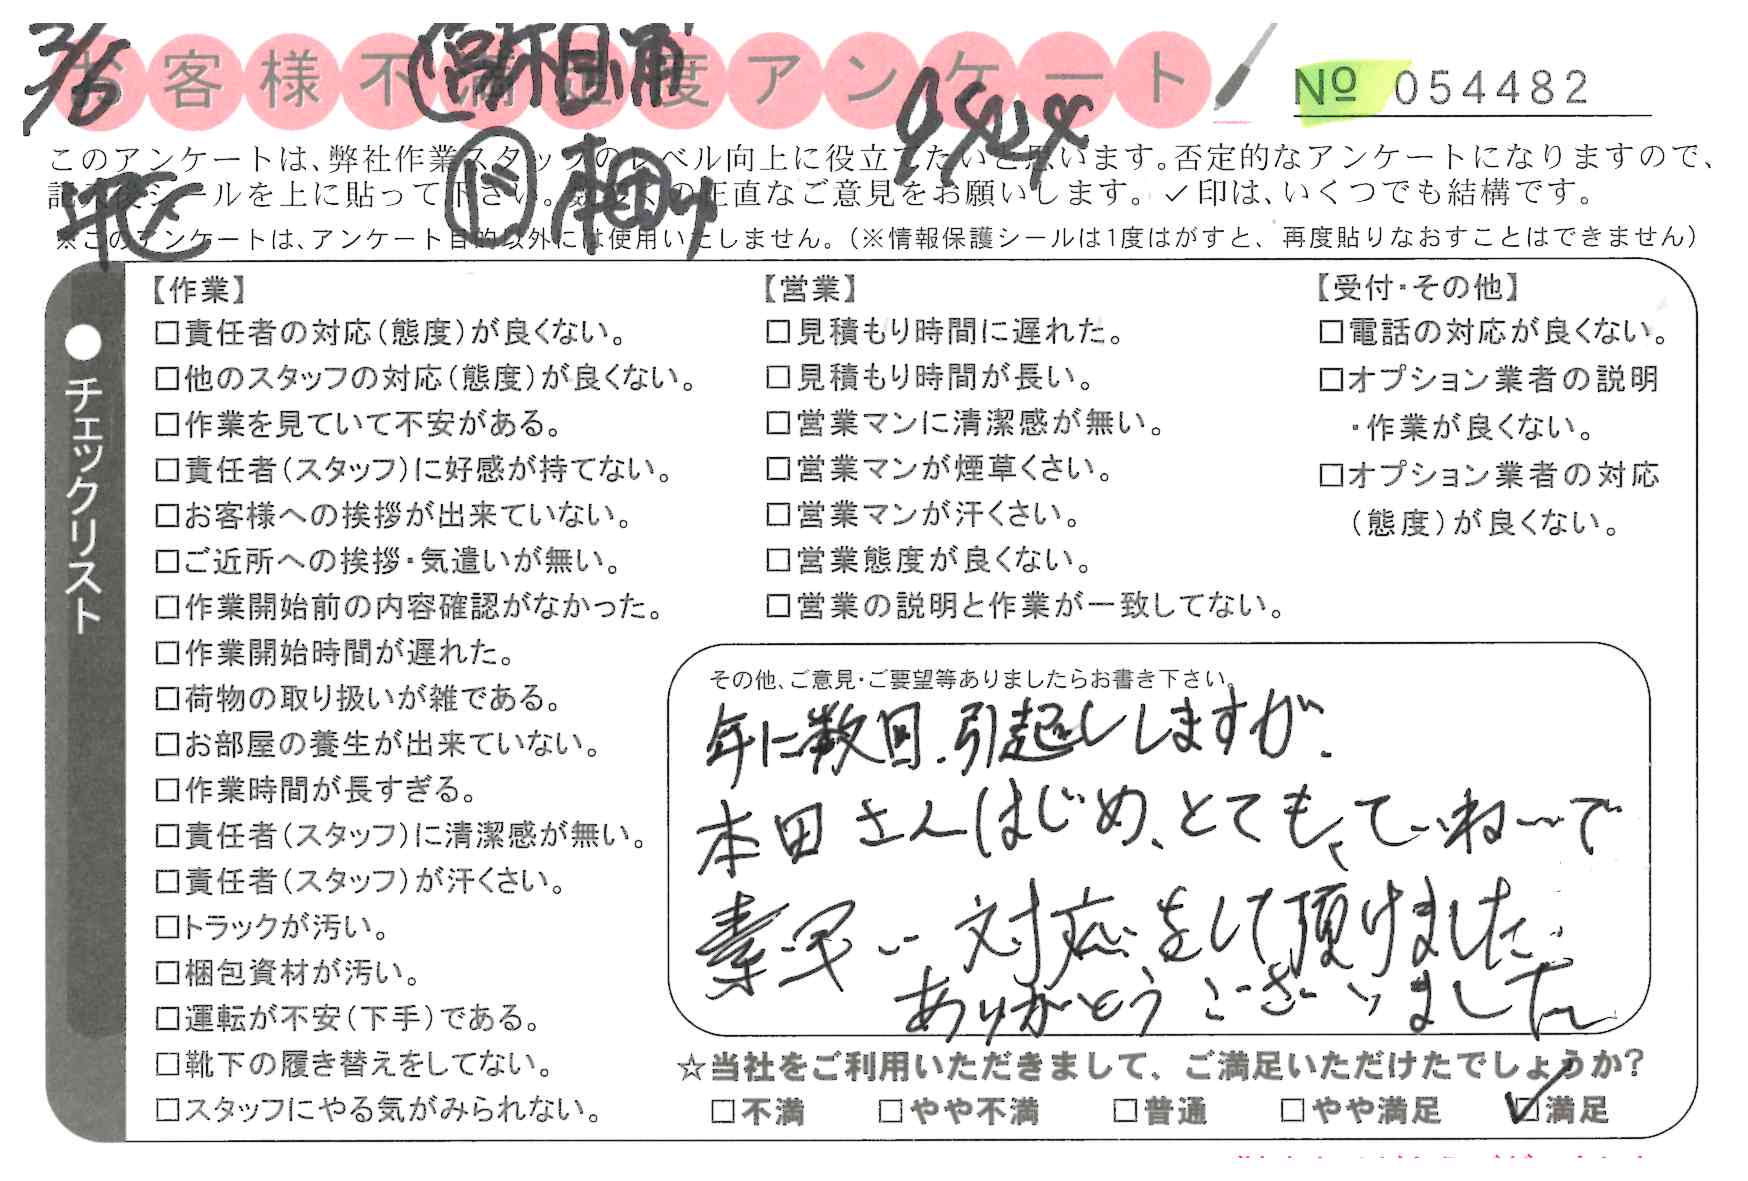 お客様不満足度アンケート
№ 054482
このアンケートは、弊社作業スタッフのレベル向上に役立てたいと思います。否定的なアンケートになりますので、
記入後シールを上に貼って下さい。の正直なご意見をお願いします。✓印は、いくつでも結構です。
※このアンケートは、アンケート目的以外には使用いたしません。(※情報保護シールは1度はがすと、再度貼りなおすことはできません)
●チェックリスト
【作業】
□責任者の対応(態度)が良くない。
□他のスタッフの対応(態度)が良くない。
□作業を見ていて不安がある。
□責任者(スタッフ)に好感が持てない。
□お客様への挨拶が出来ていない。
□ご近所への挨拶・気遣いが無い。
□作業開始前の内容確認がなかった。
□作業開始時間が遅れた。
□荷物の取り扱いが雑である。
□お部屋の養生が出来ていない。
□作業時間が長すぎる。
□責任者(スタッフ)に清潔感が無い。
□責任者(スタッフ)が汗くさい。
□トラックが汚い。
□梱包資材が汚い。
□運転が不安(下手)である。
□靴下の履き替えをしてない。
□スタッフにやる気がみられない。
【営業】
□見積もり時間に遅れた。
□見積もり時間が長い。
□営業マンに清潔感が無い。
□営業マンが煙草くさい。
□営業マンが汗くさい。
□営業態度が良くない。
□営業の説明と作業が一致してない。
【受付・その他】
□電話の対応が良くない。
□オプション業者の説明
・作業が良くない。
□オプション業者の対応
(態度)が良くない。
その他、ご意見・ご要望等ありましたらお書き下さい。
年に数回、引越ししますが、
本田さんはじめ、とても、てーねーで
素早い対応をして頂けました。
ありがとうございました
☆当社をご利用いただきまして、ご満足いただけたでしょうか?
□不満 □やや不満 □普通 □やや満足 ☑満足